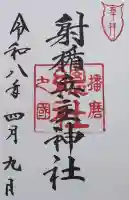 奉拝
射楯兵主神社
播磨
之國
令和八年四月九日